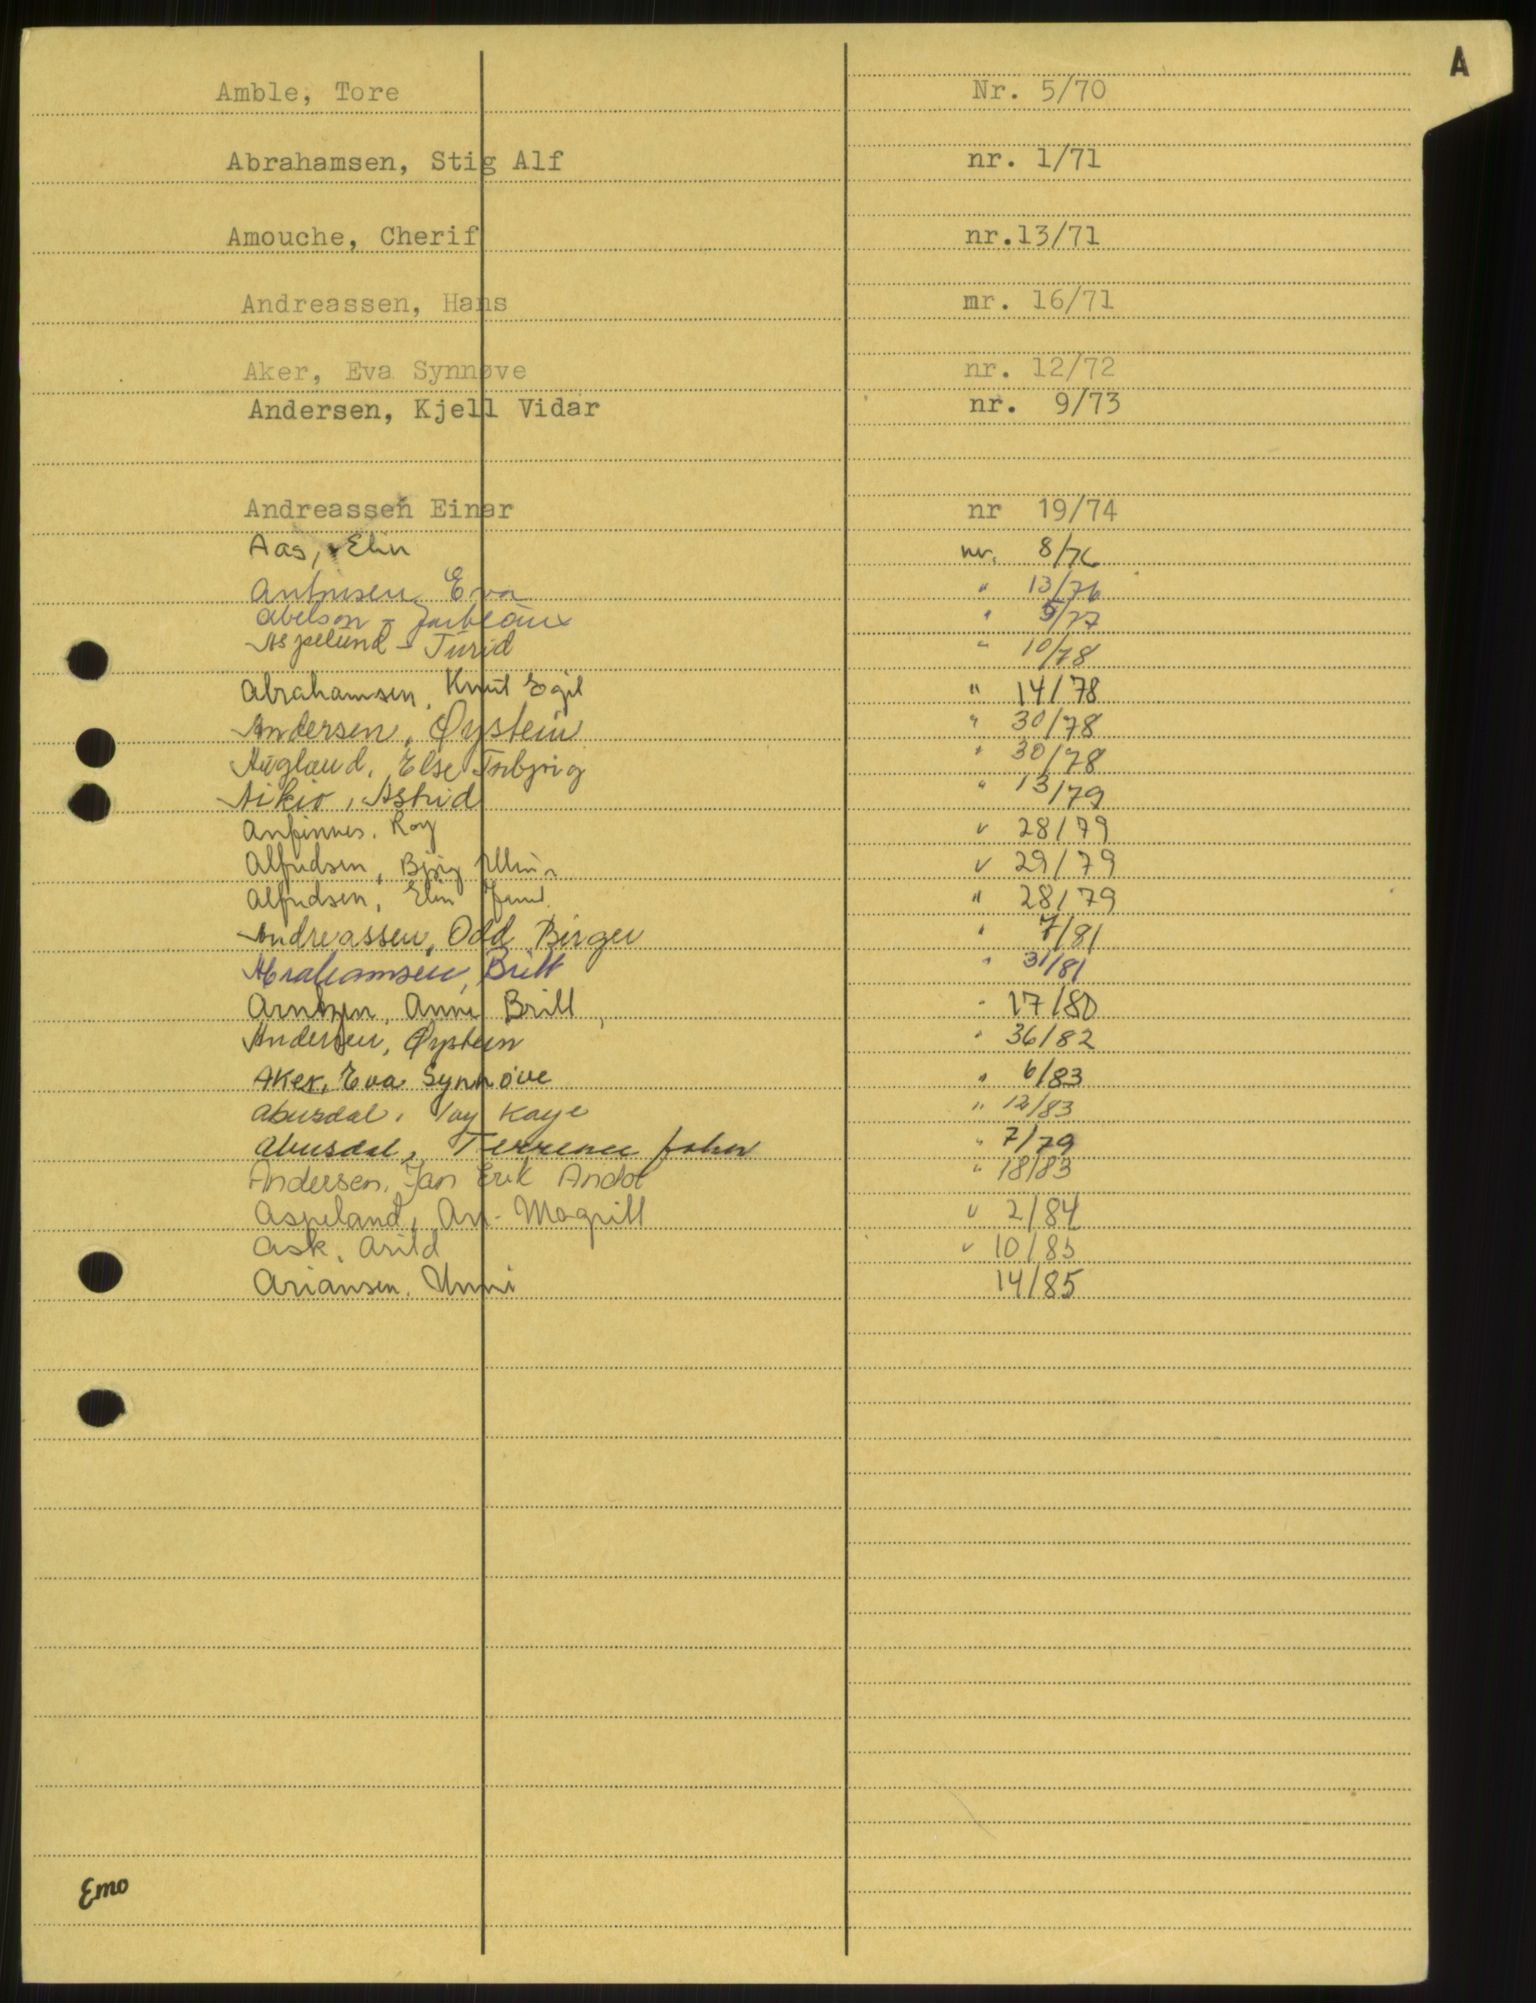 A
Amble, Tore Nr. 5/70
Abrahamsen, Stig Alf nr. 1/71
Amouche, Cherif nr.13/71
Andreassen, Hans mr. 16/71
Aker, Eva Synnøve nr. 12/72
Andersen, Kjell Vidar nr. 9/73
Andreassen Einar nr 19/74
Aas, Elin nr. 8/76
Antonsen Eva " 13/76
Abelson - " 5/77
Aspelund - Turid " 10/78
Abrahamsen, Knut Egil " 14/78
Andersen, Øystein " 30/78
Augland, Else Torbjørg " 30/78
Aikio, Astrid " 13/79
Anfinnes, Roy " 28/79
Alfredsen, Bjørg " 29/79
Alfredsen, Elin " 28/79
Andreassen, Odd Birger " 7/81
Abrahamsen, Britt " 31/81
Arntzen, Anne Britt, " 17/80
Andersen, Øystein " 36/82
Aker, Eva Synnøve " 6/83
Abusdal, Kaye " 12/83
Abusdal, Terrence John " 7/79
Andersen, Jan Erik Andor " 18/83
Aspeland, Ann-Magritt " 2/84
Ask, Arild " 10/85
Ariansen, Unni 14/85
Emo